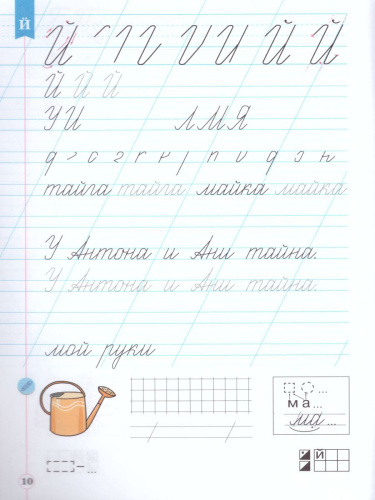 Й
Й Й Й
Й Й Й
УИ ЛМЯ
тайга тайга майка майка
У Антона и Ани тайна.
У Антона и Ани тайна.
мой руки
ма...
ма...
– ...
Й
10